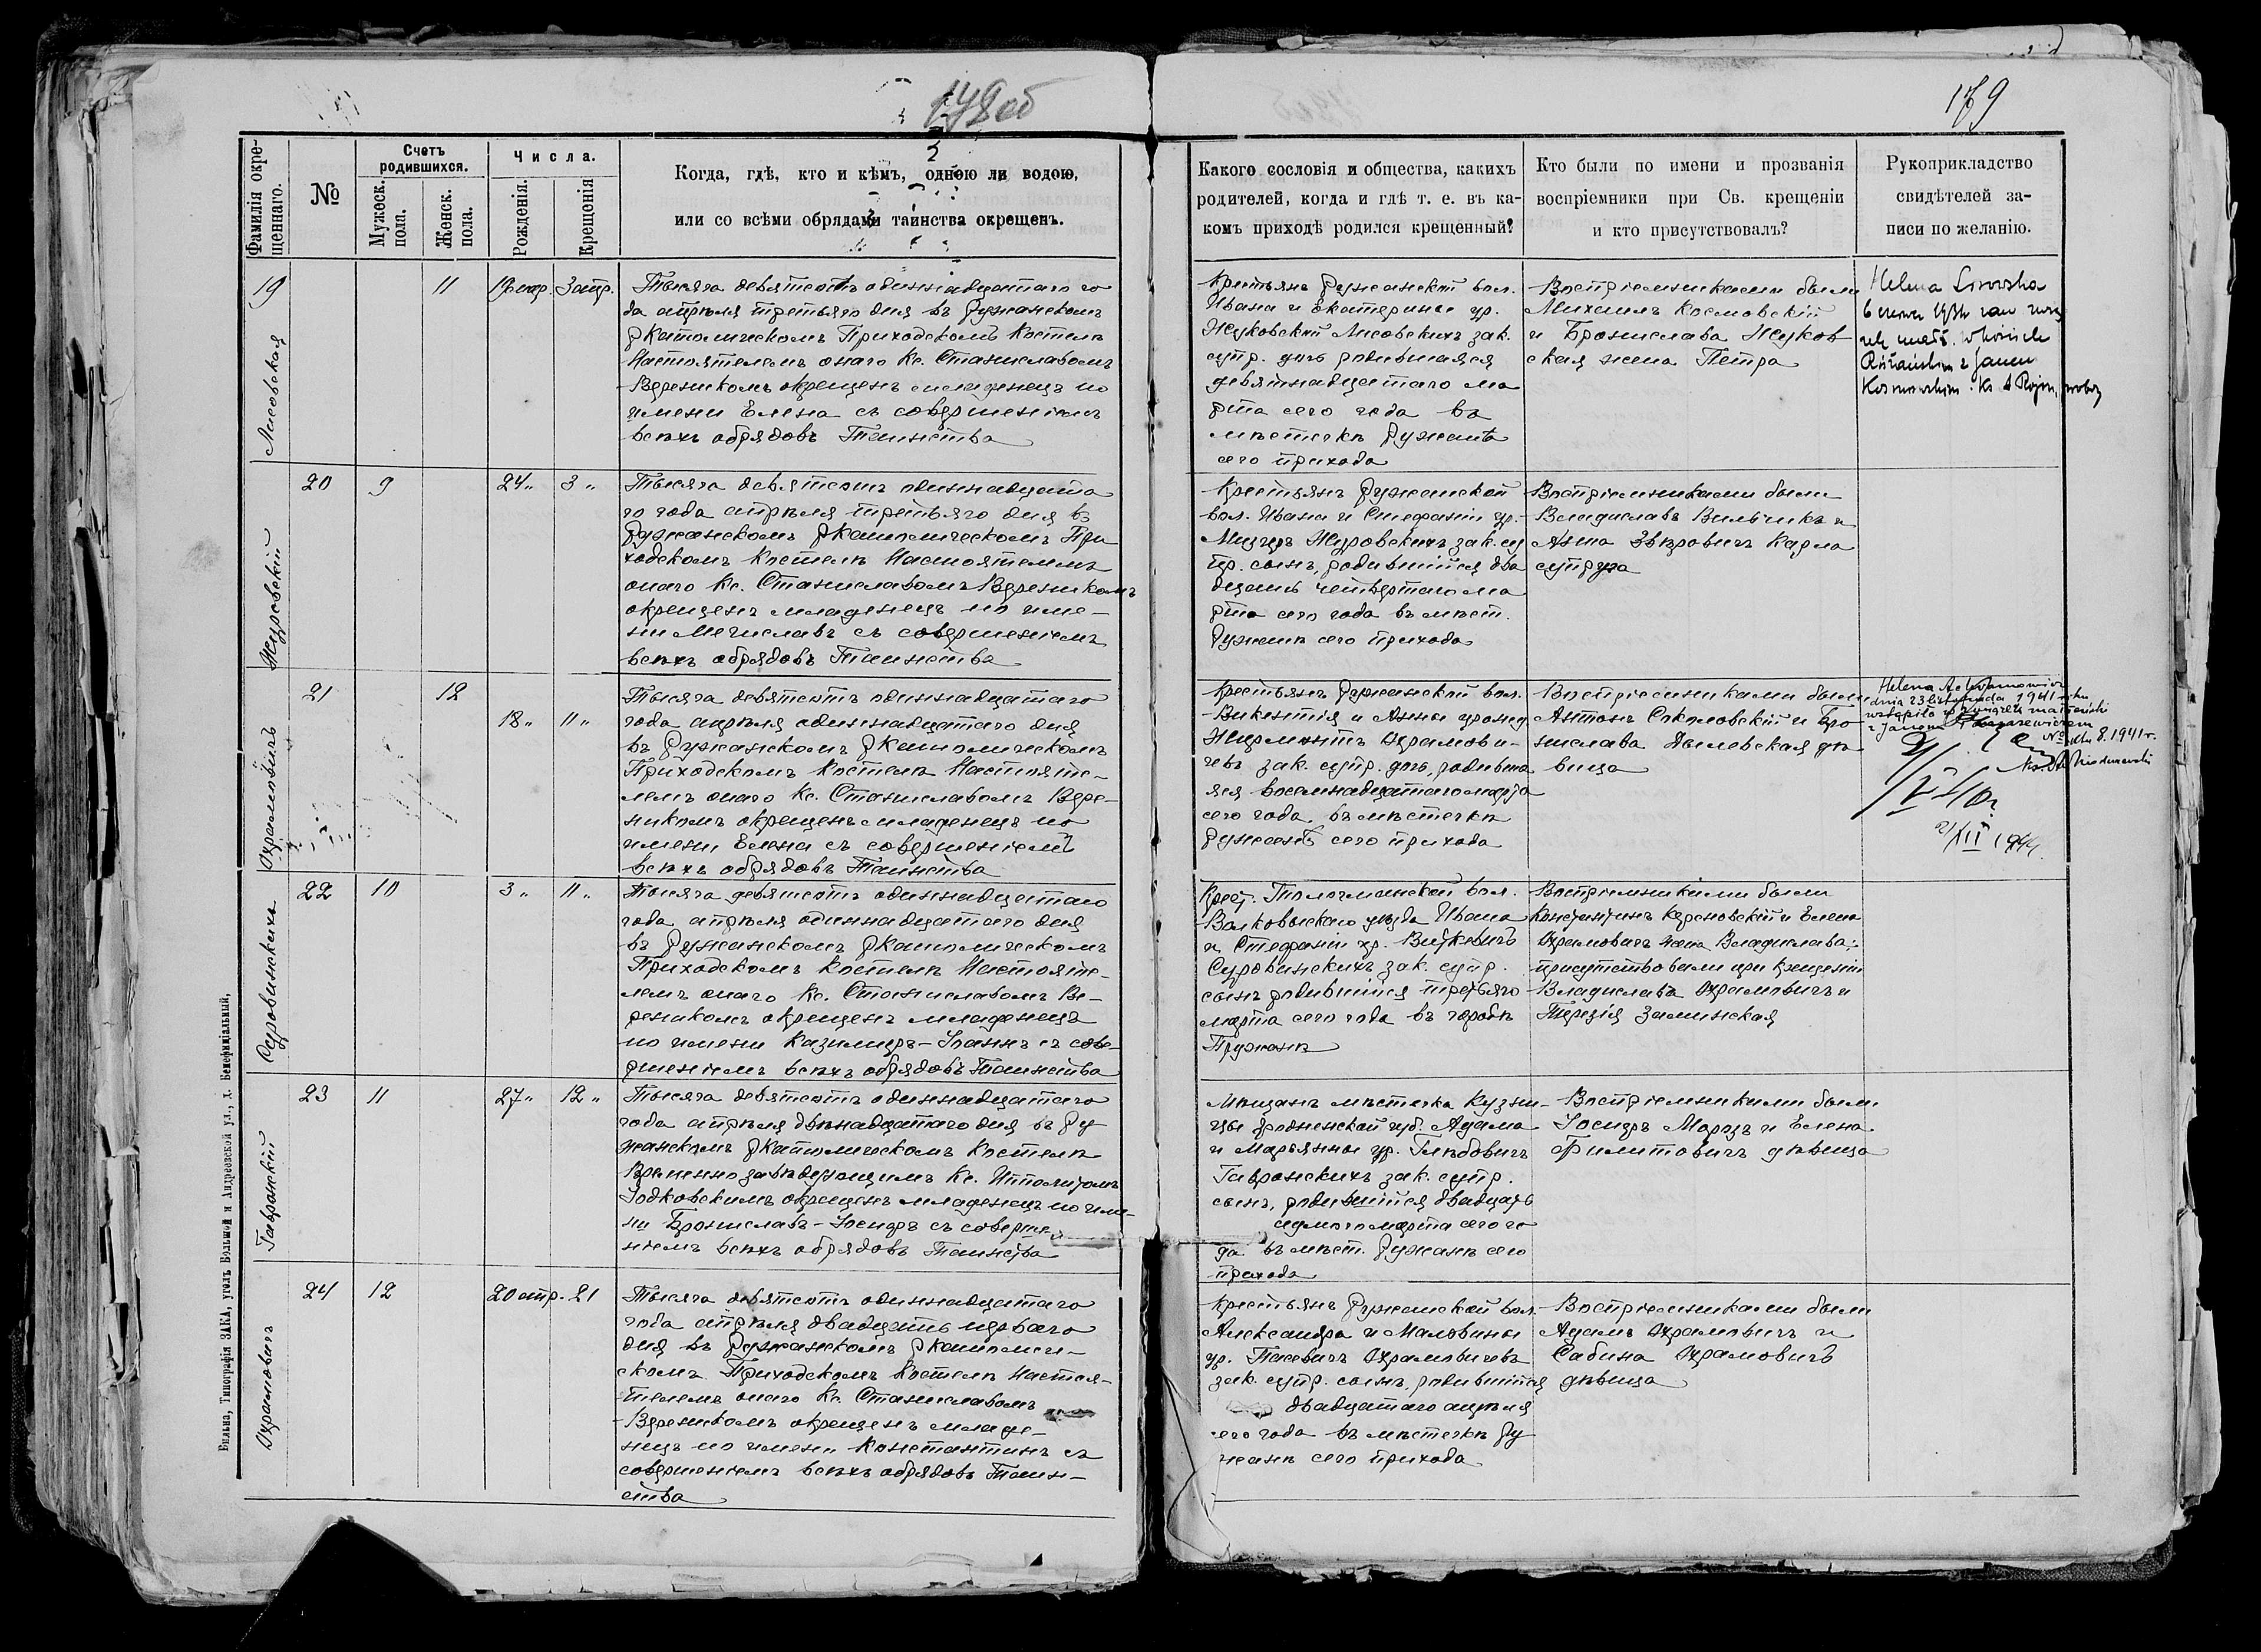 179
Фамилія окре-
щеннаго.
№
Счетъ
родившихся.
Мужеск.
пола.
Женск.
пола.
Числа.
Рожденія.
Крещенія
Когда, гдѣ, кто и кѣмъ, одною ли водою,
или со всѣми обрядами таинства окрещенъ.
Какого сословія и общества, какихъ
родителей, когда и гдѣ т. е. въ ка-
комъ приходѣ родился крещенный?
Кто были по имени и прозванія
воспріемники при Св. крещеніи
и кто присутствовалъ?
Рукоприкладство
свидѣтелей за-
писи по желанію.
19
Лисовская
11
19 мар.
3 апр.
Тысяча девятсотъ одиннадцатаго го
да апрѣля третьяго дня въ Ружанскомъ
Ркатолическомъ Приходскомъ Костелѣ
Настоятелемъ онаго Кс. Станиславомъ
окрещенъ младенецъ по
имени Елена съ совершеніемъ
всѣхъ обрядовъ Таинства
Крестьянъ Ружанской вол.
Ивана и Екатерины ур.
Жуковской Лисовскихъ зак.
супр. дочь родившаяся
девятнадцатаго ма
рта сего года въ
мѣстечкѣ Ружанѣ
сего прихода
Воспріемниками были
Михаилъ Космовскій
и Бронислава Жуков
ская жена Петра
Helena Lisowska
20
Журовскій
9
24 "
3 "
Тысяча девятсотъ одиннадцата
го года апрѣля третьяго дня въ
Ружанскомъ Ркатолическомъ При
ходскомъ Костелѣ Настоятелемъ
онаго Кс. Станиславомъ
окрещенъ младенецъ по име-
ни Мечиславъ съ совершеніемъ
всѣхъ обрядовъ Таинства
Крестьянъ Ружанской
вол. Ивана и Стефаніи ур.
Журовскихъ зак. су
пр. сынъ, родившійся два
дцать четвертаго ма
рта сего года въ мѣст.
Ружанѣ сего прихода
Воспріемниками были
Владиславъ и
Анна Карла
супруга
21
Охрамовичъ
12
18 "
11 "
Тысяча девятсотъ одиннадцатаго
года апрѣля одиннадцатаго дня
въ Ружанскомъ Ркатолическомъ
Приходскомъ Костелѣ Настояте-
лемъ онаго Кс. Станиславомъ
окрещенъ младенецъ по
имени Елена съ совершеніемъ
всѣхъ обрядовъ Таинства
Крестьянъ Ружанской вол.
Викентія и Анны урожд
Охрамови-
чевъ зак. супр. дочь, родивша
яся восемнадцатаго марта
сего года въ мѣстечкѣ
Ружанѣ сего прихода
Воспріемниками были
Антонъ Соколовскій и Бро
нислава дѣ
вица
Helena
dnia 23 listopada 1941 roku
8. 1941 r.
22
Суровинскихъ
10
3 "
11 "
Тысяча девятсотъ одиннадцатаго
года апрѣля одиннадцатаго дня
въ Ружанскомъ Ркатолическомъ
Приходскомъ Костелѣ Настояте-
лемъ онаго Кс. Станиславомъ
окрещенъ младенецъ
по имени Казимиръ-Іоаннъ съ сове-
ршеніемъ всѣхъ обрядовъ Таинства
Крест. вол.
Волковыскаго уѣзда Ивана
и Стефаніи ур.
Суровинскихъ зак. супр.
сынъ родившійся третьяго
марта сего года въ городѣ
Пружанѣ
Воспріемниками были
Константинъ и Елена
Охрамовичъ жена Владислава;
присутствовали при крещеніи
Владиславъ Охрамовичъ и
Терезія
23
Гавронскій
11
27 "
12 "
Тысяча девятсотъ одиннадцатаго
года апрѣля двѣнадцатаго дня въ Ру
жанскомъ Ркатолическомъ Костелѣ
Временно завѣдующимъ Кс. Ипполитомъ
окрещенъ младенецъ по име-
ни Брониславъ-Іосифъ съ соверше
ніемъ всѣхъ обрядовъ Таинства
Мѣщанъ мѣстечка Кузни-
цы Гродненской губ. Адама
и Марьянны ур.
Гавронскихъ зак. супр.
сынъ, родившійся двадцать
седьмого марта сего го
да въ мѣст. Ружанѣ сего
прихода
Воспріемниками были
Іосифъ Морозъ и Елена
Филиповичъ дѣвица
24
Охрамовичъ
12
20 апр.
21
Тысяча девятсотъ одиннадцатаго
года апрѣля двадцать перваго
дня въ Ружанскомъ Ркатоличе-
скомъ Приходскомъ Костелѣ Настоя-
телемъ онаго Кс. Станиславомъ
окрещенъ младе-
нецъ по имени Константинъ съ
совершеніемъ всѣхъ обрядовъ Таин-
ства
Крестьянъ Ружанской вол.
Александра и Мальвины
ур. Охрамовичевъ
зак. супр. сынъ, родившійся
двадцатаго апрѣля
сего года въ мѣстечкѣ Ру
жанѣ сего прихода
Воспріемниками были
Адамъ Охрамовичъ и
Сабина Охрамовичъ
дѣвица
Вильна, Типографія ЗАКА, уголъ Большой и Андреевской ул., д. Бенефиціальный,